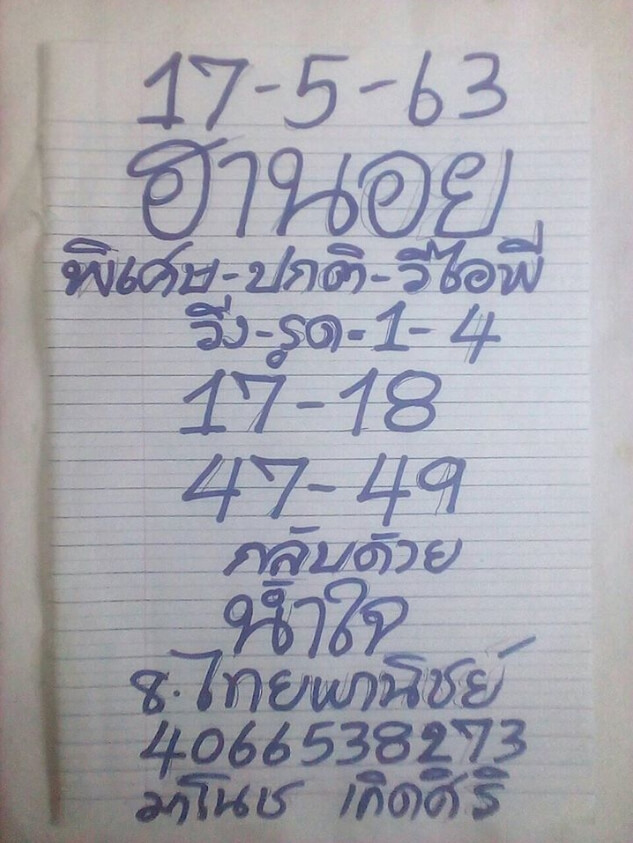 17-5-63
ฮานอย
พิเศษ-ปกติ-วีไอพี
วิ่ง-รูด-1-4
17-18
47-49
กลับด้วย
น้ำใจ
ธ.ไทยพานิชย์
4066538273
มาโนช เกิดศิริ